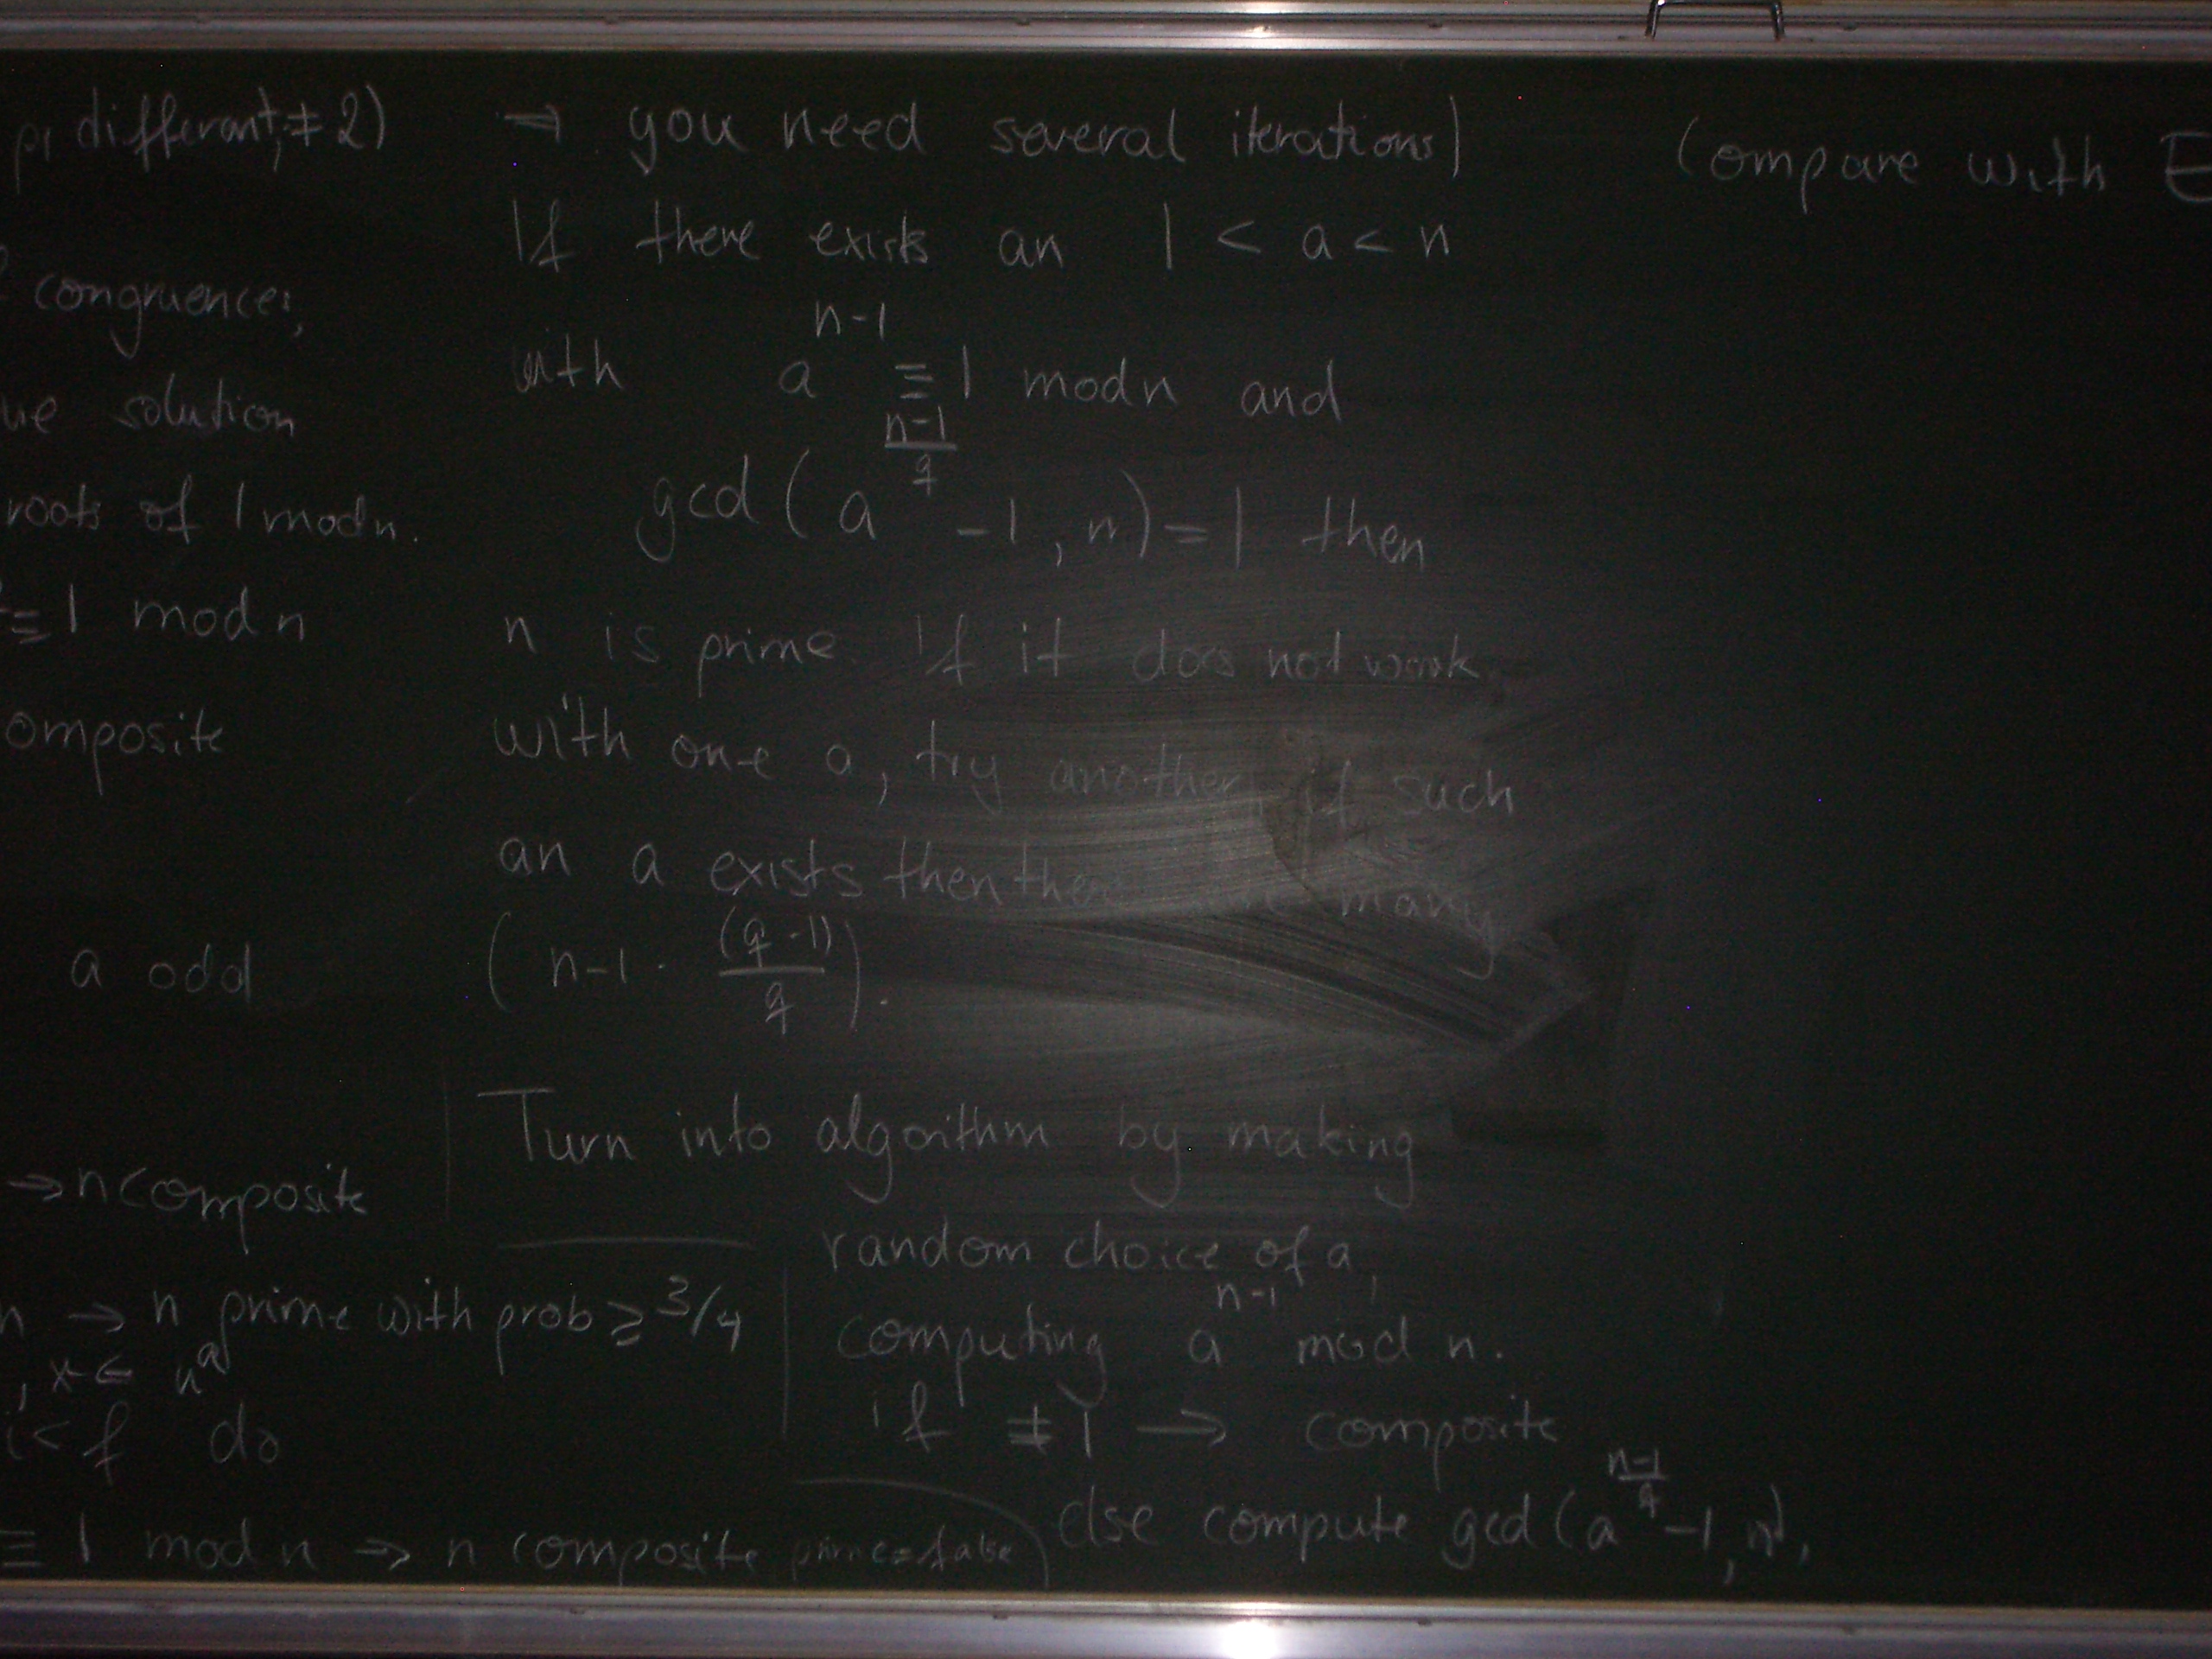 pi different, ≠ 2)
congruences,
solution
roots of 1 mod n.
≡ 1 mod n
omposite
a odd
→ n composite
n → n prime with prob ≥ 3/4
, x ← u^a
i < f do
≡ 1 mod n → n composite prime=false
⇒ you need several iterations)
If there exists an 1 < a < n
with a^(n-1) ≡ 1 mod n and
gcd(a^((n-1)/q) - 1, n) = 1 then
n is prime. If it does not work
with one a, try another, if such
an a exists then there many
(n-1 · (q-1)/q).
Turn into algorithm by making
random choice of a,
computing a^(n-1) mod n.
if ≢ 1 → composite
else compute gcd(a^((n-1)/q) - 1, n),
Compare with E